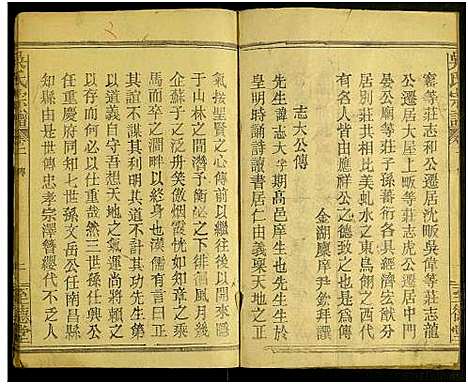 窰等莊志和公遷居沈畈吳偉等莊志龍
公遷居大屋上畈等莊志虎公遷居中門
晏公廟等莊子孫蕃衍各具經濟宏猷分
居別莊共相比美虬水之東鳥翻之西代
有各人皆由應祥公之貽謀也是為傳
金湖縻庠尹欽拜譔
志大公傳
先生諱志大字期高邑庠生也先生生於
皇明時誦詩讀書居仁由義稟天地之
氣按聖賢之心傳前以繼往後以開來隱
于山林之間浮于衡泌之下徘徊風月幾
企蘇子之泛舟笑傲烟霞恍如知章之乘
馬而卒之澗畔以終身也漢儒有言曰正
其誼不謀其利明其道不計其功先生第
以道義自守吾想天地之氣運尚與之以
存而何必以仕重哉然三世孫仕興公
任重慶府同知七世孫文岳公任南昌縣
知縣由是世傳忠孝宗澤簪纓代不乏人
吳氏宗譜
卷一
傳
一
至德堂